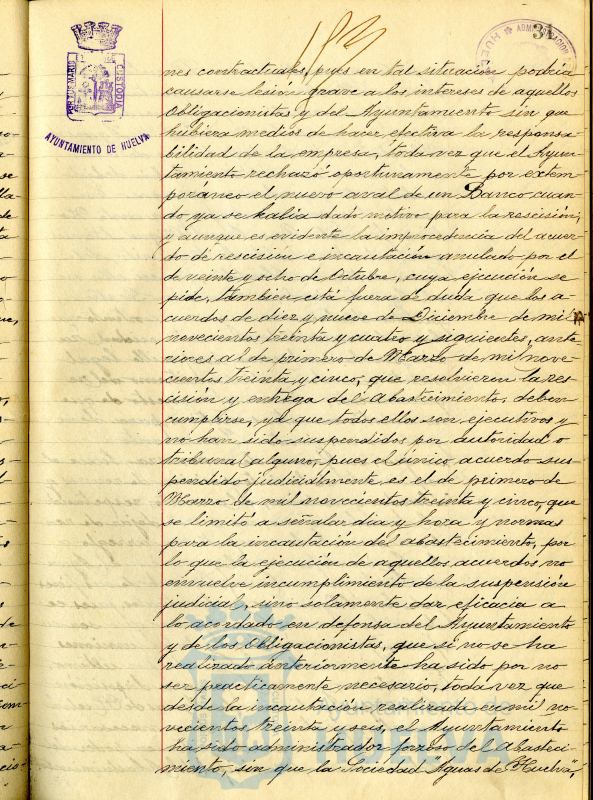 34
ADMINISTRACION
HUELVA
PORTUS MARIS ET TERRE CUSTODIA
AYUNTAMIENTO DE HUELVA
nes contractuales, pues en tal situación podría
causarse lesión grave a los intereses de aquellos
Obligacionistas y del Ayuntamiento sin que
hubiera medios de hacer efectiva la responsa-
bilidad de la empresa, toda vez que el Ayun-
tamiento rechazó oportunamente por extem-
poráneo el nuevo aval de un Banco cuan-
do ya se había dado motivo para la rescisión;
y aunque es evidente la improcedencia del acuer-
do de rescisión e incautación anulado por el
de veinte y ocho de Octubre, cuya ejecución se
pide, también está fuera de duda que los a-
cuerdos de diez y nueve de Diciembre de mil
novecientos treinta y cuatro y siguientes, ante-
riores al de primero de Marzo de mil nove-
cientos treinta y cinco, que resolvieron la res-
cisión y entrega del Abastecimiento, deben
cumplirse, ya que todos ellos son ejecutivos y
no han sido suspendidos por autoridad o
tribunal alguno, pues el único acuerdo sus-
pendido judicialmente es el de primero de
Marzo de mil novecientos treinta y cinco, que
se limitó a señalar dia y hora y normas
para la incautación del abastecimiento, por
lo que la ejecución de aquellos acuerdos no
envuelve incumplimiento de la suspensión
judicial, sino solamente dar eficacia a
lo acordado en defensa del Ayuntamiento
y de los Obligacionistas, que si no se ha
realizado anteriormente ha sido por no
ser practicamente necesario, toda vez que
desde la incautación realizada en mil no-
vecientos treinta y seis, el Ayuntamiento
ha sido administrador forzoso del Abasteci-
miento, sin que la Sociedad "Aguas de Huelva",
HUELVA